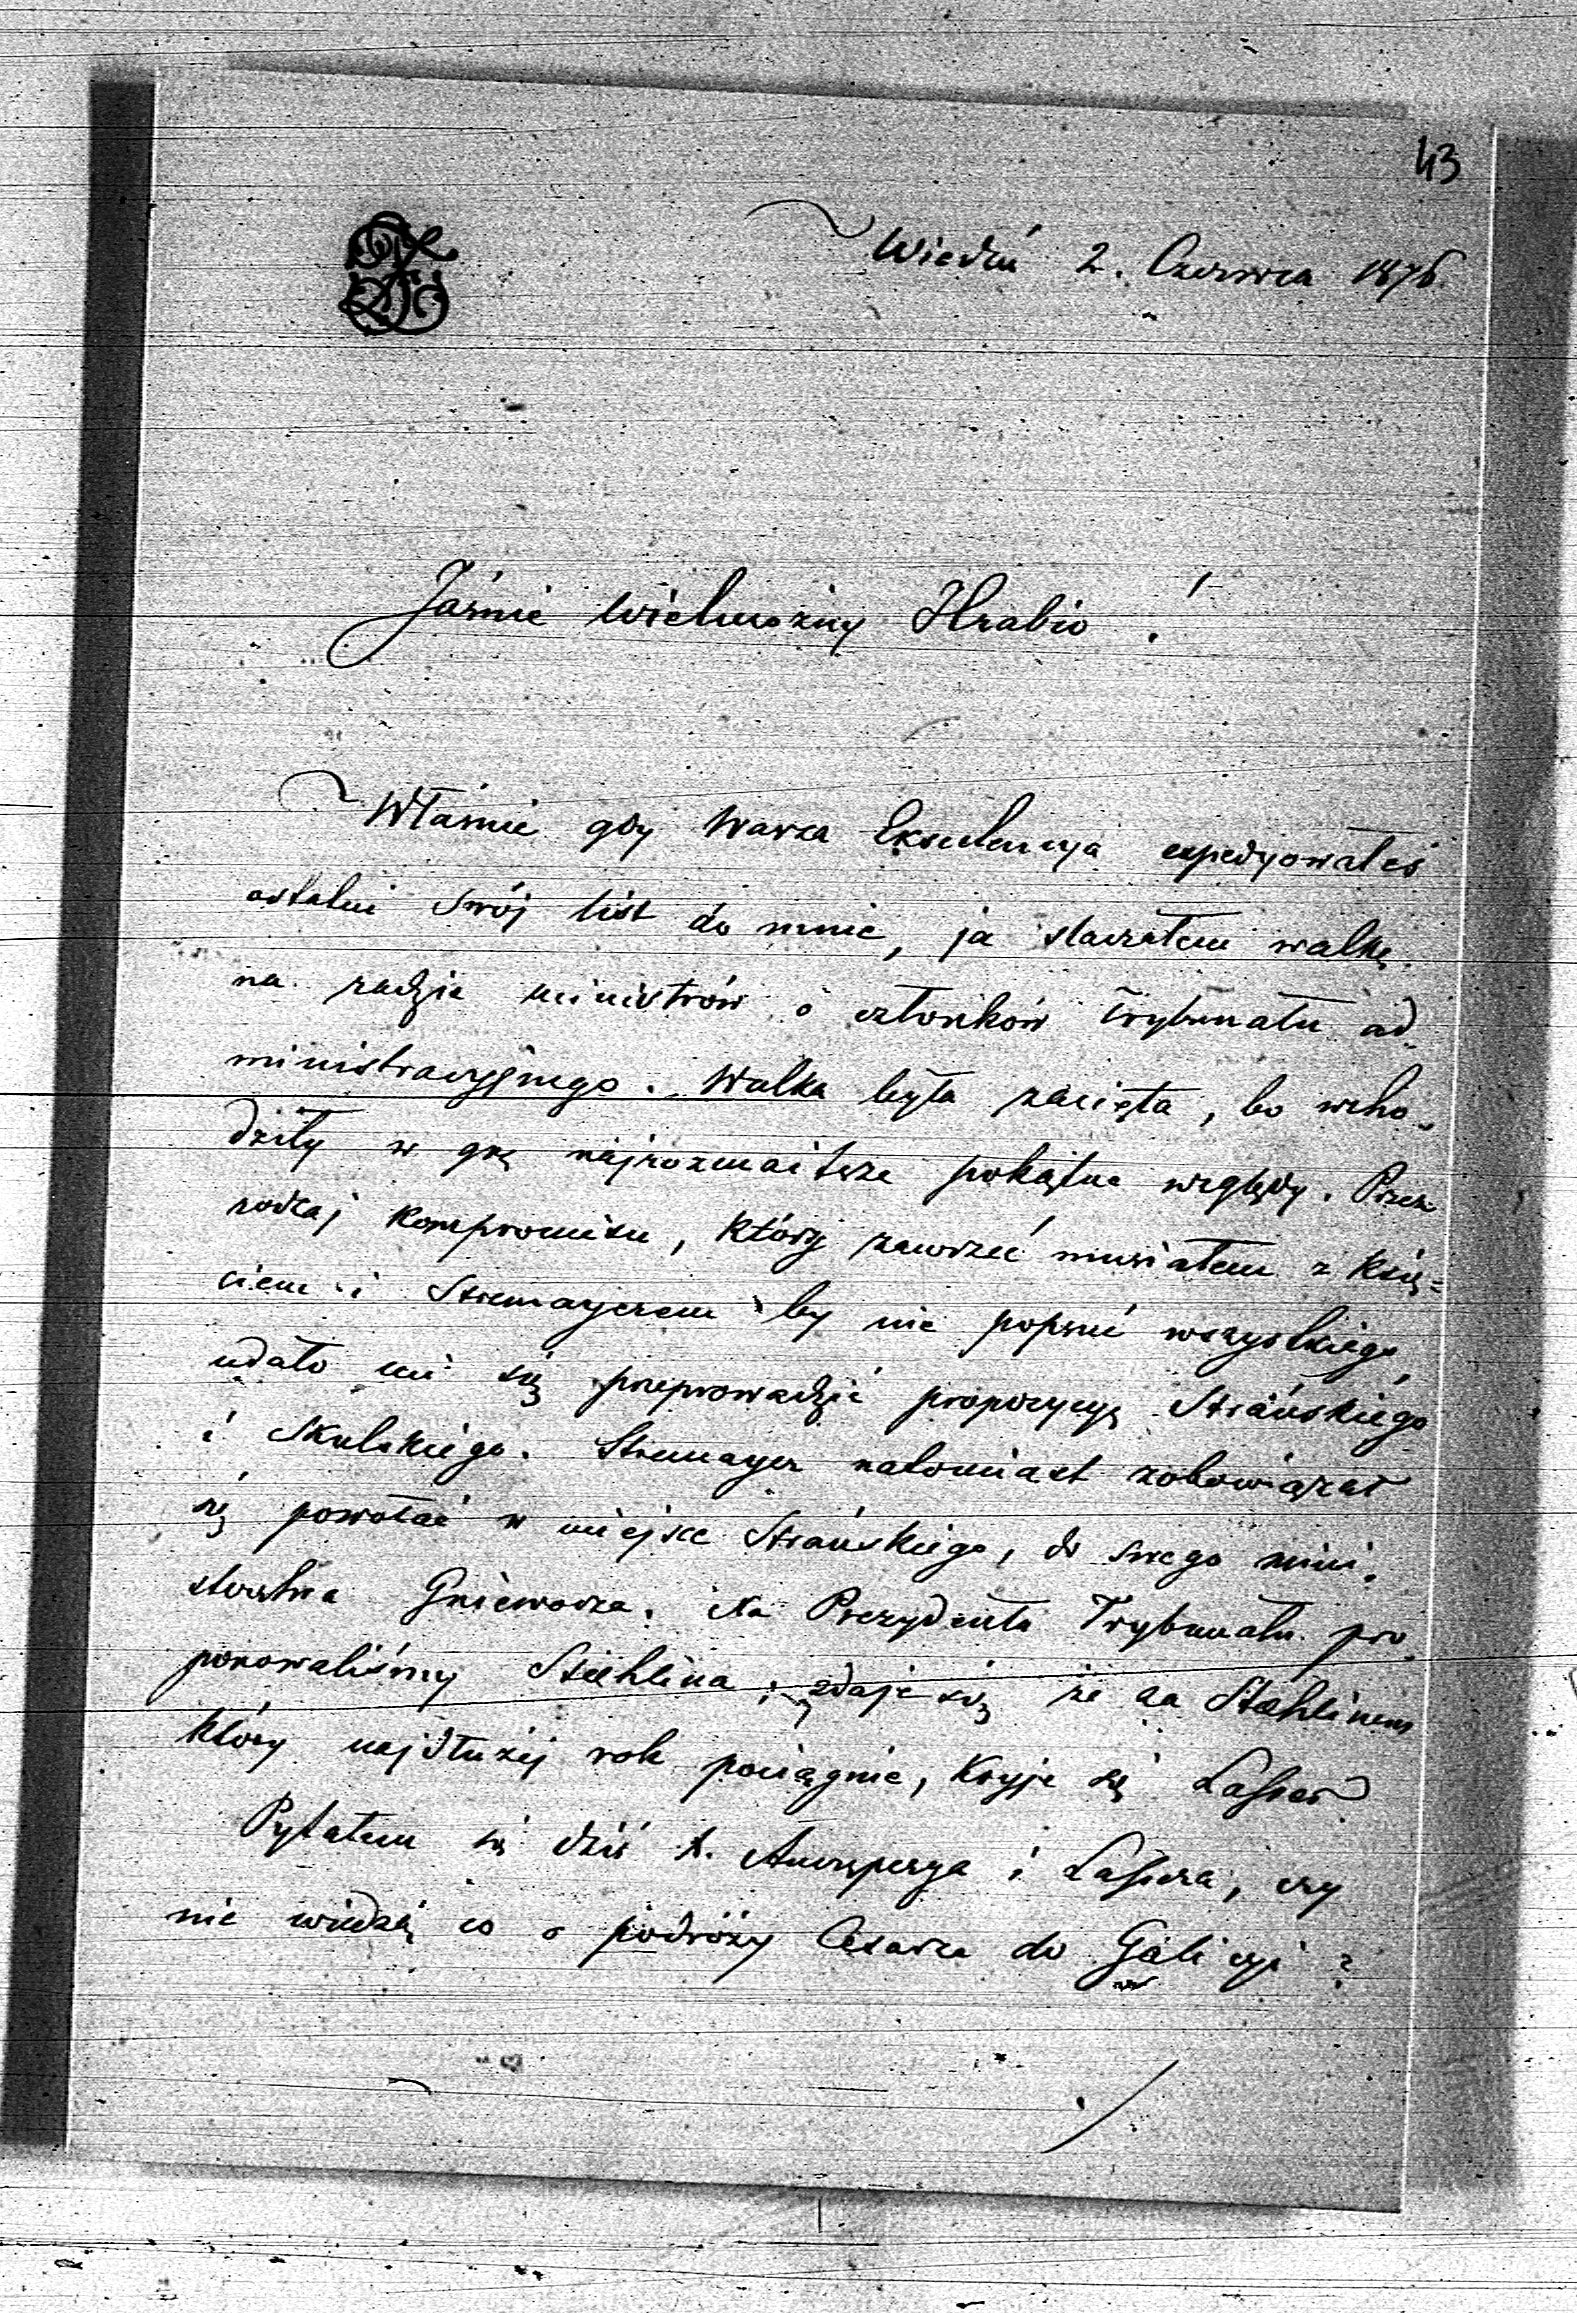 43
Wiedeń 2. Czerwca 1876.
Jaśnie Wielmożny Hrabio!
Właśnie gdy Wasza Ekscelencya expedyowałeś
ostatni swój list do mnie, ja staczałem walkę
na radzie ministrów o członków trybunału ad-
ministracyjnego. Walka była zacięta, bo wcho-
dziły w grę najrozmaitsze pokątne względy. Przez
rodzaj kompromisu, który zawrzeć musiałem z Księ=
ciem i Stremayerem by nie popsuć wszystkiego,
udało mi się przeprowadzić propozycyę Strańskiego
i Skulskiego. Stremayer natomiast zobowiązał
się powołać w miejsce Strańskiego, do swego mini-
sterstwa Gniewosza. Na Prezydenta Trybunału pro-
ponowaliśmy Stählina; zdaje się że za Stählinem
który najdłużej rok pociągnie, kryje się Lasser.
Pytałem się dziś A. Auersperga i Lassera, czy
nie wiedzą co o podróży Cesarza do Galicyi?